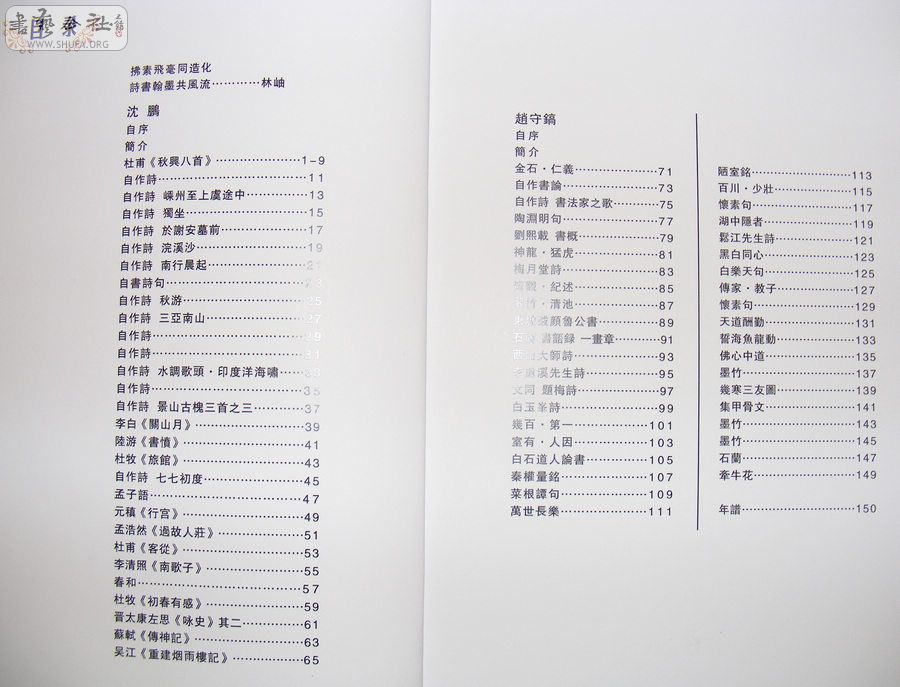 社
WWW.SHUFX.ORG
拂素飛毫同造化
詩書翰墨共風流…………林岫
沈 鵬
自序
簡介
杜甫《秋興八首》…………………1-9
自作詩…………………………………11
自作詩 嵊州至上虞途中……………13
自作詩 獨坐…………………………15
自作詩 於謝安墓前…………………17
自作詩 浣溪沙………………………19
自作詩 南行晨起……………………21
自書詩句………………………………23
自作詩 秋游…………………………25
自作詩 三亞南山……………………27
自作詩…………………………………29
自作詩…………………………………31
自作詩 水調歌頭·印度洋海嘯……33
自作詩…………………………………35
自作詩 景山古槐三首之三…………37
李白《關山月》………………………39
陸游《書憤》…………………………41
杜牧《旅館》…………………………43
自作詩 七七初度……………………45
孟子語…………………………………47
元稹《行宫》…………………………49
孟浩然《過故人莊》…………………51
杜甫《客從》…………………………53
李清照《南歌子》……………………55
春和……………………………………57
杜牧《初春有感》……………………59
晋太康左思《咏史》其二……………61
蘇軾《傳神記》………………………63
吴江《重建烟雨樓記》………………65
趙守鎬
自序
簡介
金石·仁義……………………71
自作書論………………………73
自作詩 書法家之歌…………75
陶淵明句………………………77
劉熙載 書概…………………79
神龍·猛虎……………………81
梅月堂詩………………………83
·紀述……………………85
竹·清池……………………87
顏魯公書……………………89
書語録 一畫章…………91
西山大師詩……………………93
溪先生詩…………………95
文同 題梅詩…………………97
白玉峯詩………………………99
幾百·第一……………………101
室有·人因……………………103
白石道人論書…………………105
秦權量銘………………………107
菜根譚句………………………109
萬世長樂………………………111
陋室銘…………………………113
百川·少壯……………………115
懷素句…………………………117
湖中隱者………………………119
鬆江先生詩……………………121
黑白同心………………………123
白樂天句………………………125
傳家·教子……………………127
懷素句…………………………129
天道酬勤………………………131
誓海魚龍動……………………133
佛心中道………………………135
墨竹……………………………137
幾寒三友圖……………………139
集甲骨文………………………141
墨竹……………………………143
墨竹……………………………145
石蘭……………………………147
牽牛花…………………………149
年譜……………………………150